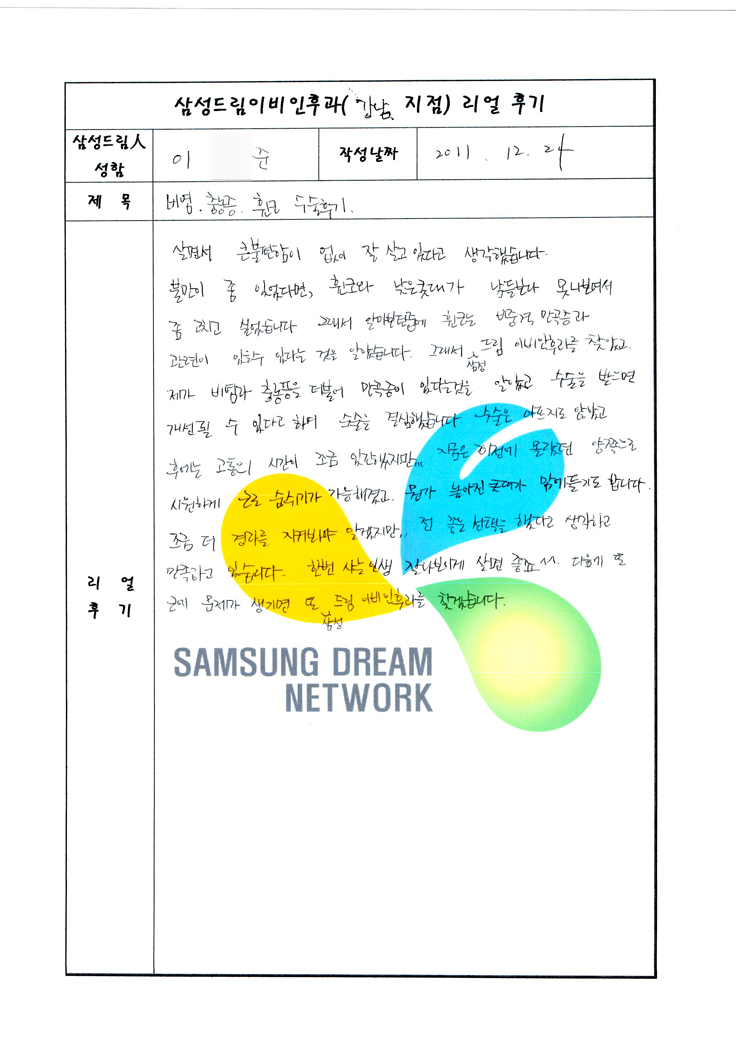 삼성드림이비인후과( 강남 지점) 리얼 후기
삼성드림人 성함
이 준
작성날짜
2011 . 12. 24
제 목
비염. 축농증. 휜코 수술후기.
리 얼 후 기
살면서 큰불편함이 없이 잘 살고 있다고 생각했습니다.
불만이 좀 있었다면, 휜코와 낮은콧대가 남들보다 못나보여서
좀 고치고 싶었습니다 그래서 알아보던중에 휜코는 비중격 만곡증과
관련이 있을수 있다는 것을 알았습니다. 그래서 삼성드림 이비인후과를 찾았고.
제가 비염과 축농증을 더불어 만곡증이 있다는것을 알았고 수술을 받으면
개선될 수 있다고 하여 수술을 결심했습니다. 수술은 아프지도 않았고
후에는 고통의 시간이 조금 있긴했지만,, 지금은 이전에 몰랐던 양쪽으로
시원하게 코로 숨쉬기가 가능해졌고. 뭔가 높아진 콧대가 맘에들기도 합니다.
조금 더 경과를 지켜봐야 알겠지만,, 전 좋은 선택을 했다고 생각하고
만족하고 있습니다. 한번 사는인생 잘나보이게 살면 좋죠^^. 다음에 또
코에 문제가 생기면 또 삼성드림 이비인후과를 찾겠습니다.
SAMSUNG DREAM
NETWORK